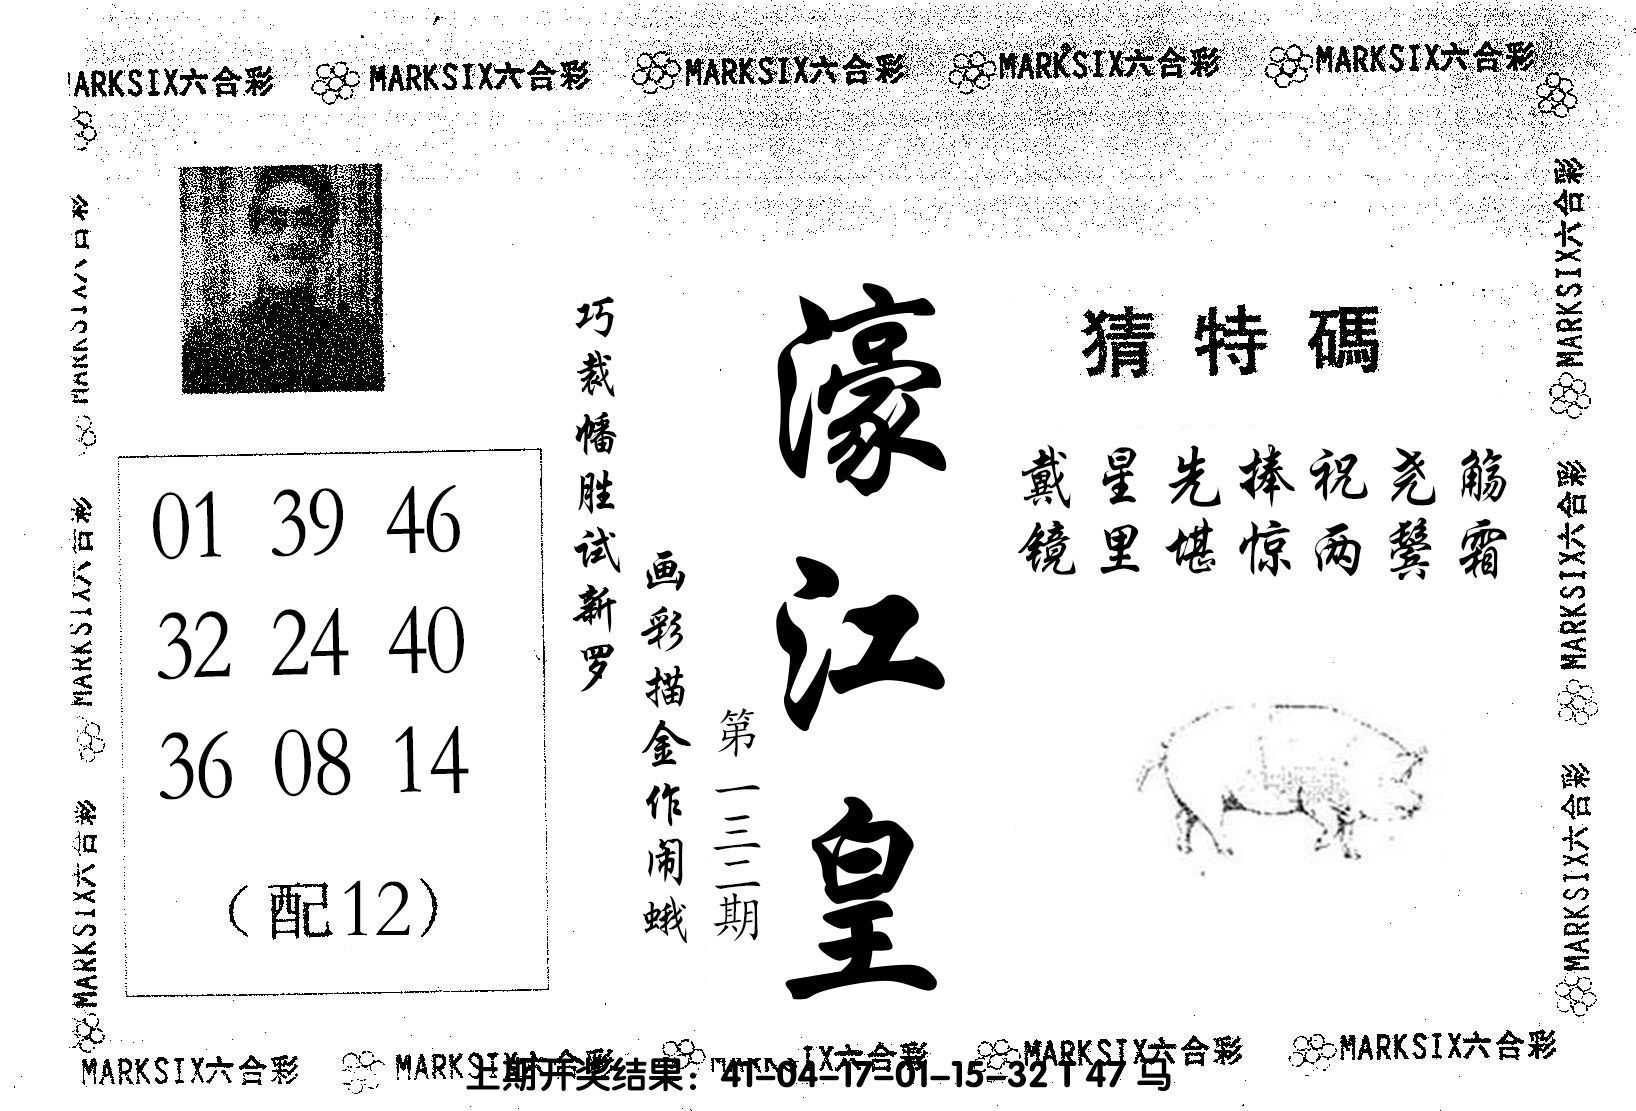 MARKSIX六合彩 MARKSIX六合彩 MARKSIX六合彩 MARKSIX六合彩 MARKSIX六合彩
01 39 46
32 24 40
36 08 14
（配12）
巧裁幡胜试新罗
画彩描金作闹蛾
第一三二期
濠江皇
猜特碼
戴星先捧祝尧觞
镜里堪惊两鬓霜
MARKSIX六合彩
MARKSIX六合彩
MARKSIX六合彩
MARKSIX六合彩
MARKSIX六合彩
MARKSIX六合彩
MARKSIX六合彩 MARKSIX六合彩 MARKSIX六合彩 MARKSIX六合彩 MARKSIX六合彩
上期开奖结果：41-04-17-01-15-32 T 47 马